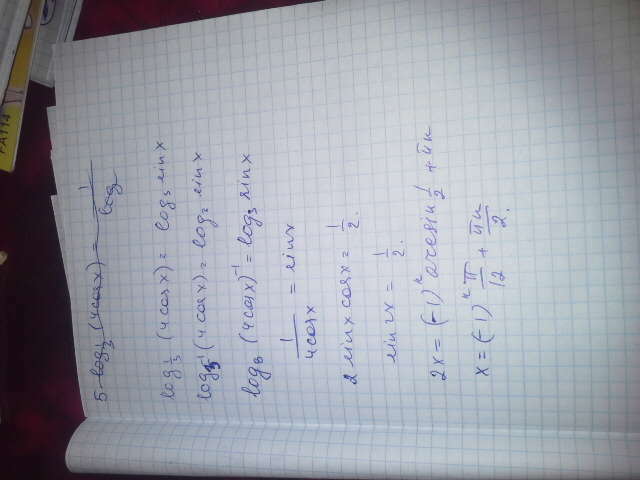 5. log₁/₃ (4cosx) = 1/log
log₁/₃ (4cosx) = log₃ sinx
log₃⁻¹ (4cosx) = log₃ sinx
log₃ (4cosx)⁻¹ = log₃ sinx
1/4cosx = sinx
2 sinx cosx = 1/2.
sin2x = 1/2.
2x = (-1)ⁿ arcsin 1/2 + πn
x = (-1)ⁿ π/12 + πn/2.